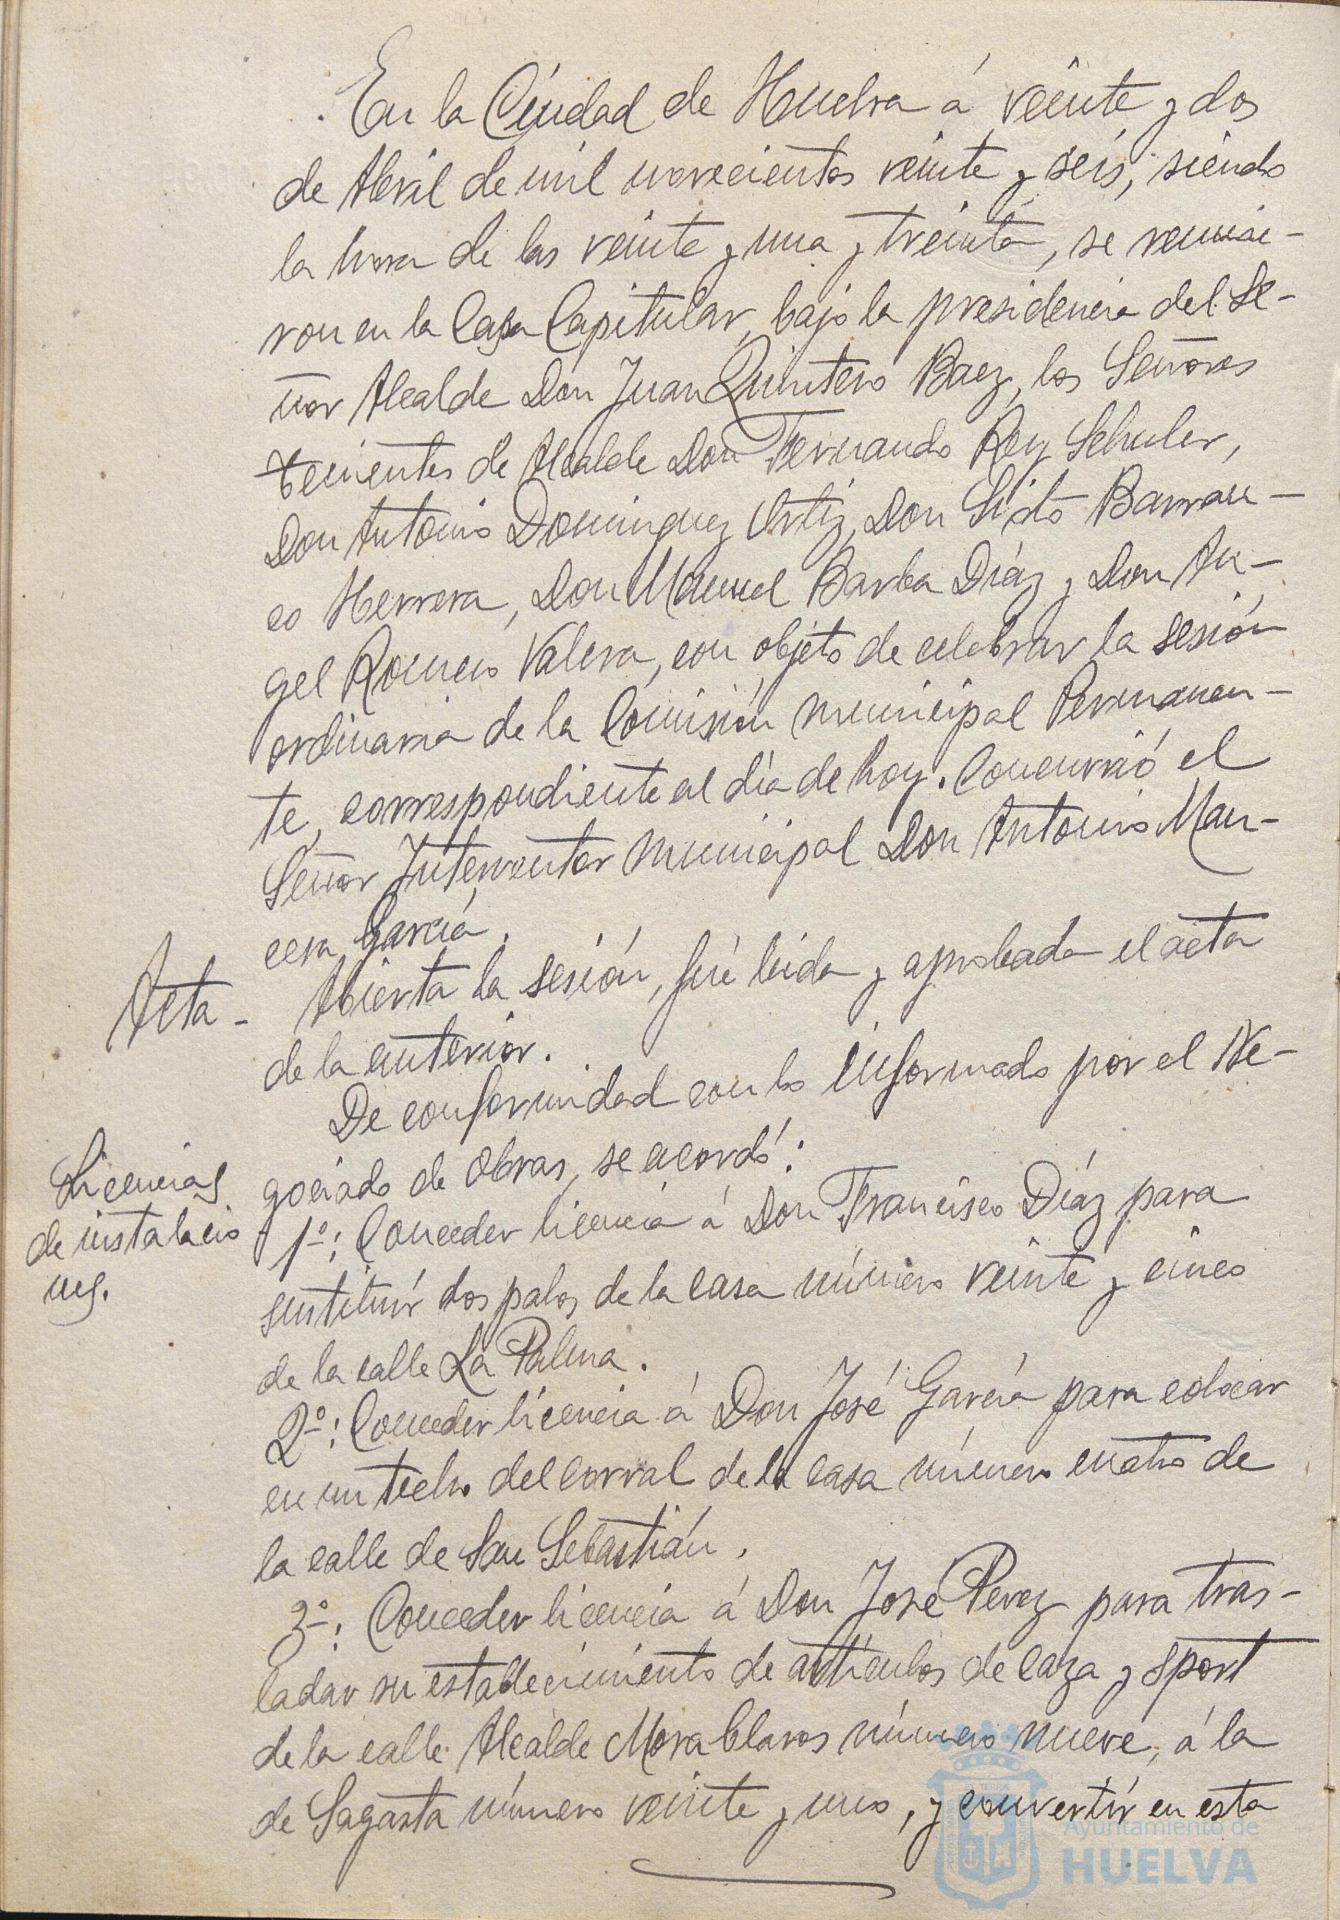 En la Ciudad de Huelva á veinte y dos
de Abril de mil novecientos veinte y seis, siendo
la hora de las veinte y una y treinta, se reunie-
ron en la Casa Capitular, bajo la presidencia del Se-
ñor Alcalde Don Juan Quintero Baez, los Señores
tenientes de Alcalde Don Fernando Rey Schuler,
Don Antonio Dominguez Ortiz, Don Sixto Barran-
co Herrera, Don Manuel Barba Díaz y Don An-
gel Romero Valera, con objeto de celebrar la sesión
ordinaria de la Comisión municipal Permanen-
te, correspondiente al día de hoy. Concurrió el
Señor Interventor municipal Don Antonio Man-
cera García.
Acta - Abierta la sesión, fué leida y aprobada el acta
de la anterior.
De conformidad con lo informado por el Ne-
gociado de Obras, se acordó:
Licencias
de instalacio
nes.
1º: Conceder licencia á Don Francisco Díaz para
sustituír dos palos de la casa número veinte y cinco
de la calle La Palma.
2º: Conceder licencia á Don José García para colocar
en un techo del corral de la casa número cuatro de
la calle de San Sebastián.
3º: Conceder licencia á Don José Perez para tras-
ladar su establecimiento de artículos de caza y sport
de la calle Alcalde Mora Claros número nueve, á la
de Sagasta número veinte y uno, y convertír en esta
Ayuntamiento de
HUELVA